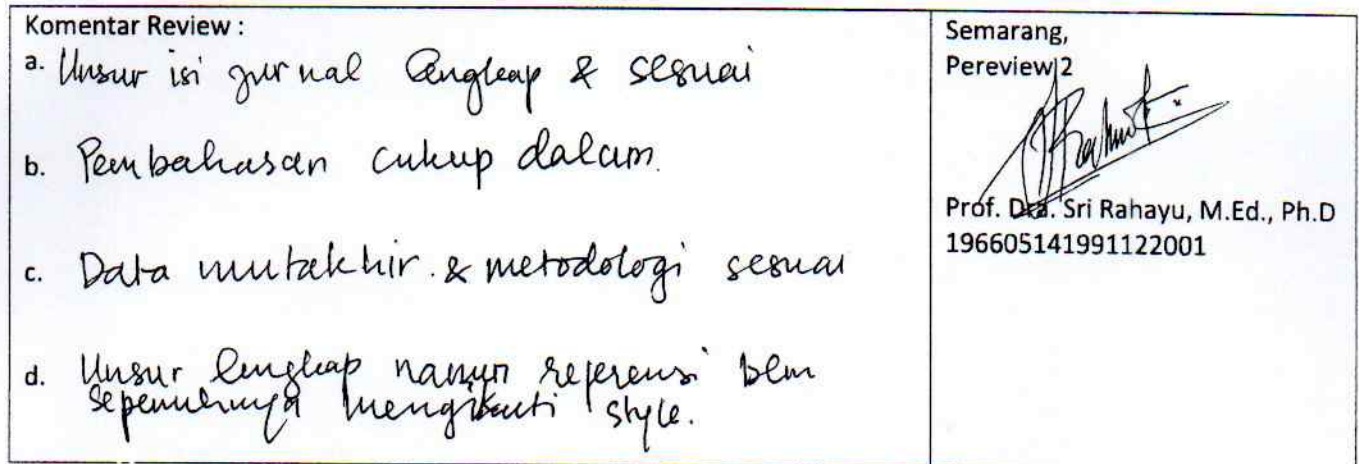 Komentar Review :
a. Unsur isi jurnal lengkap & sesuai
b. Pembahasan cukup dalam.
c. Data mutakhir & metodologi sesuai
d. Unsur lengkap namun referensi blm
sepenuhnya mengikuti style.
Semarang,
Pereview 2
Prof. Dra. Sri Rahayu, M.Ed., Ph.D
196605141991122001